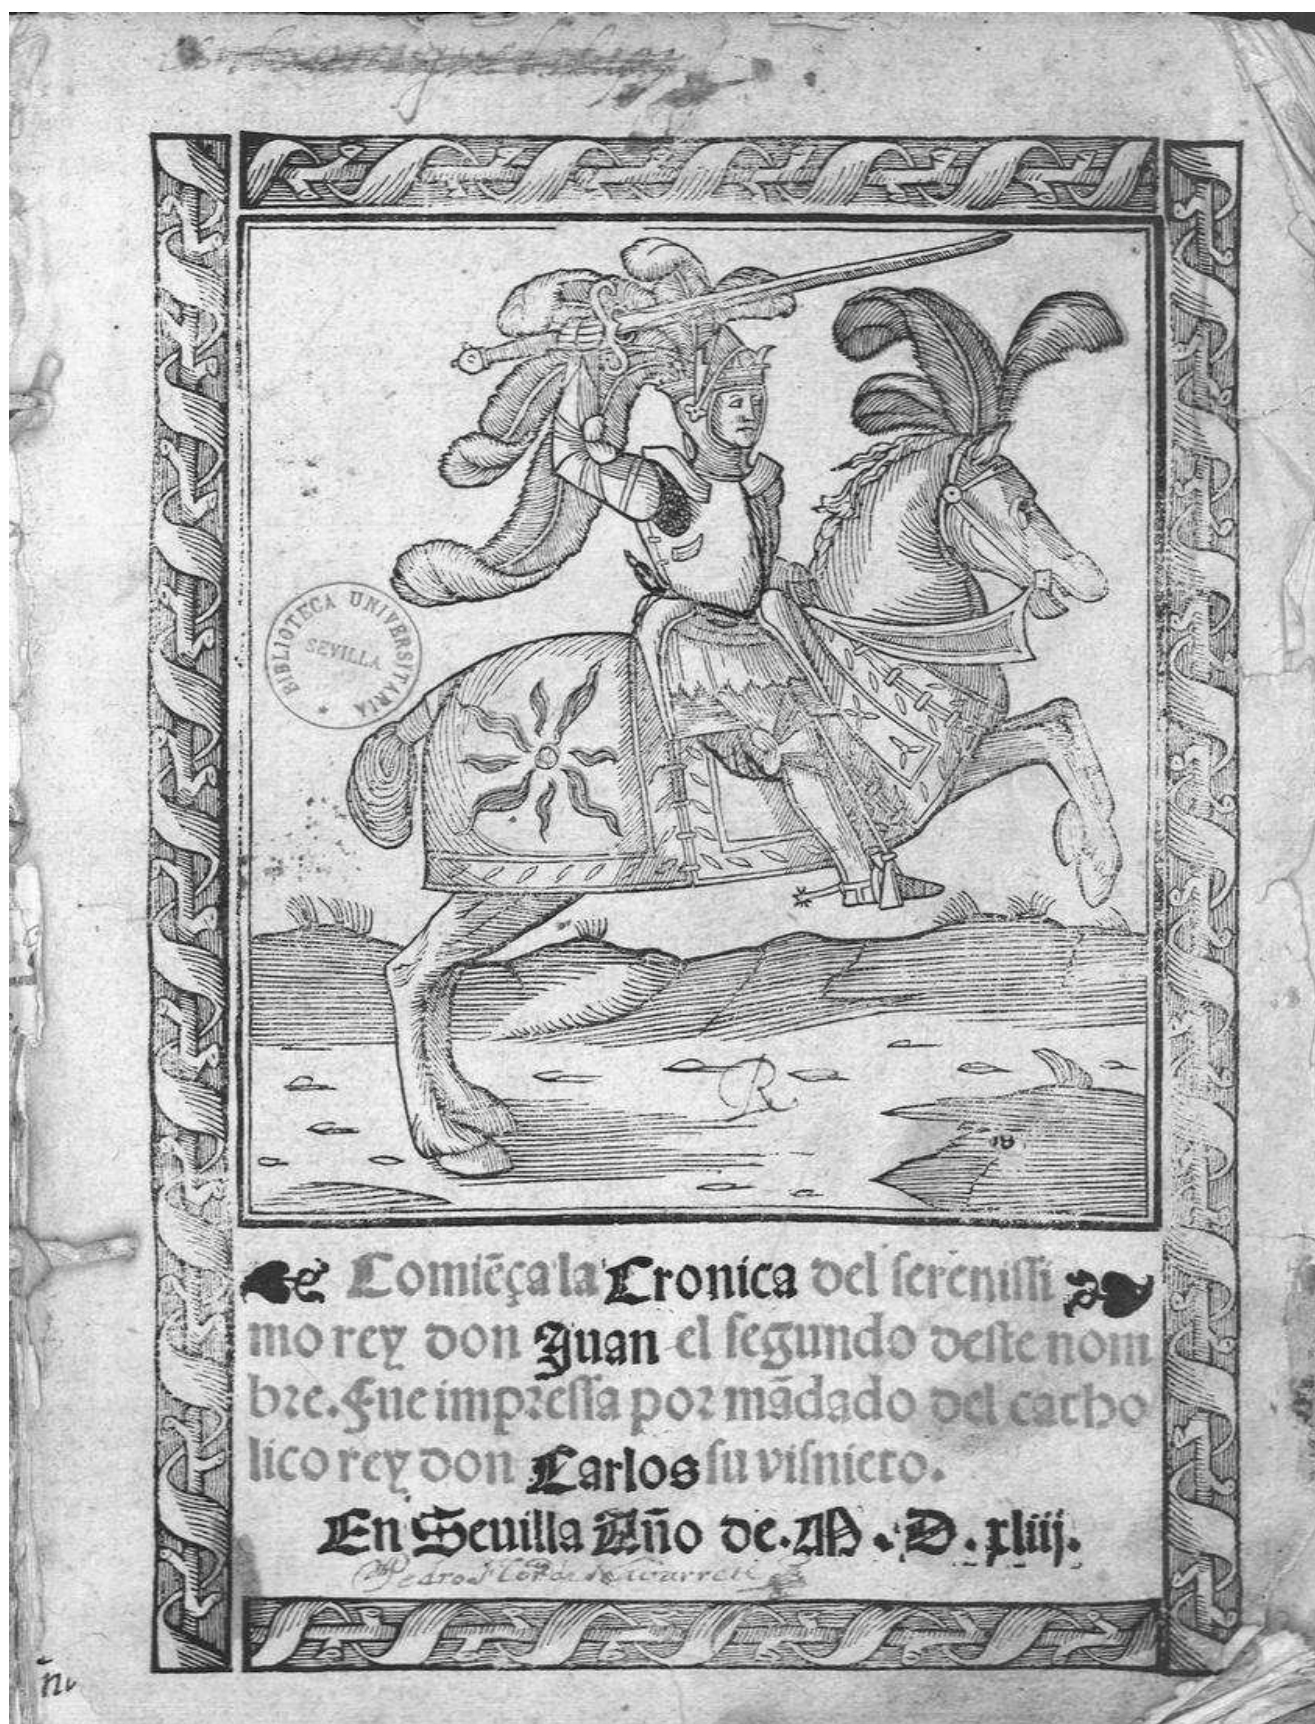 BIBLIOTECA UNIVERSITARIA
SEVILLA
R
Comiẽça la Cronica del sereniſſi
mo rey don Juan el ſegundo deſte nom
bre. Fue impreſſa por mãdado del catho
lico rey don Carlos ſu viſnieto.
En Seuilla Año de. M. D. xliij.
Pedro